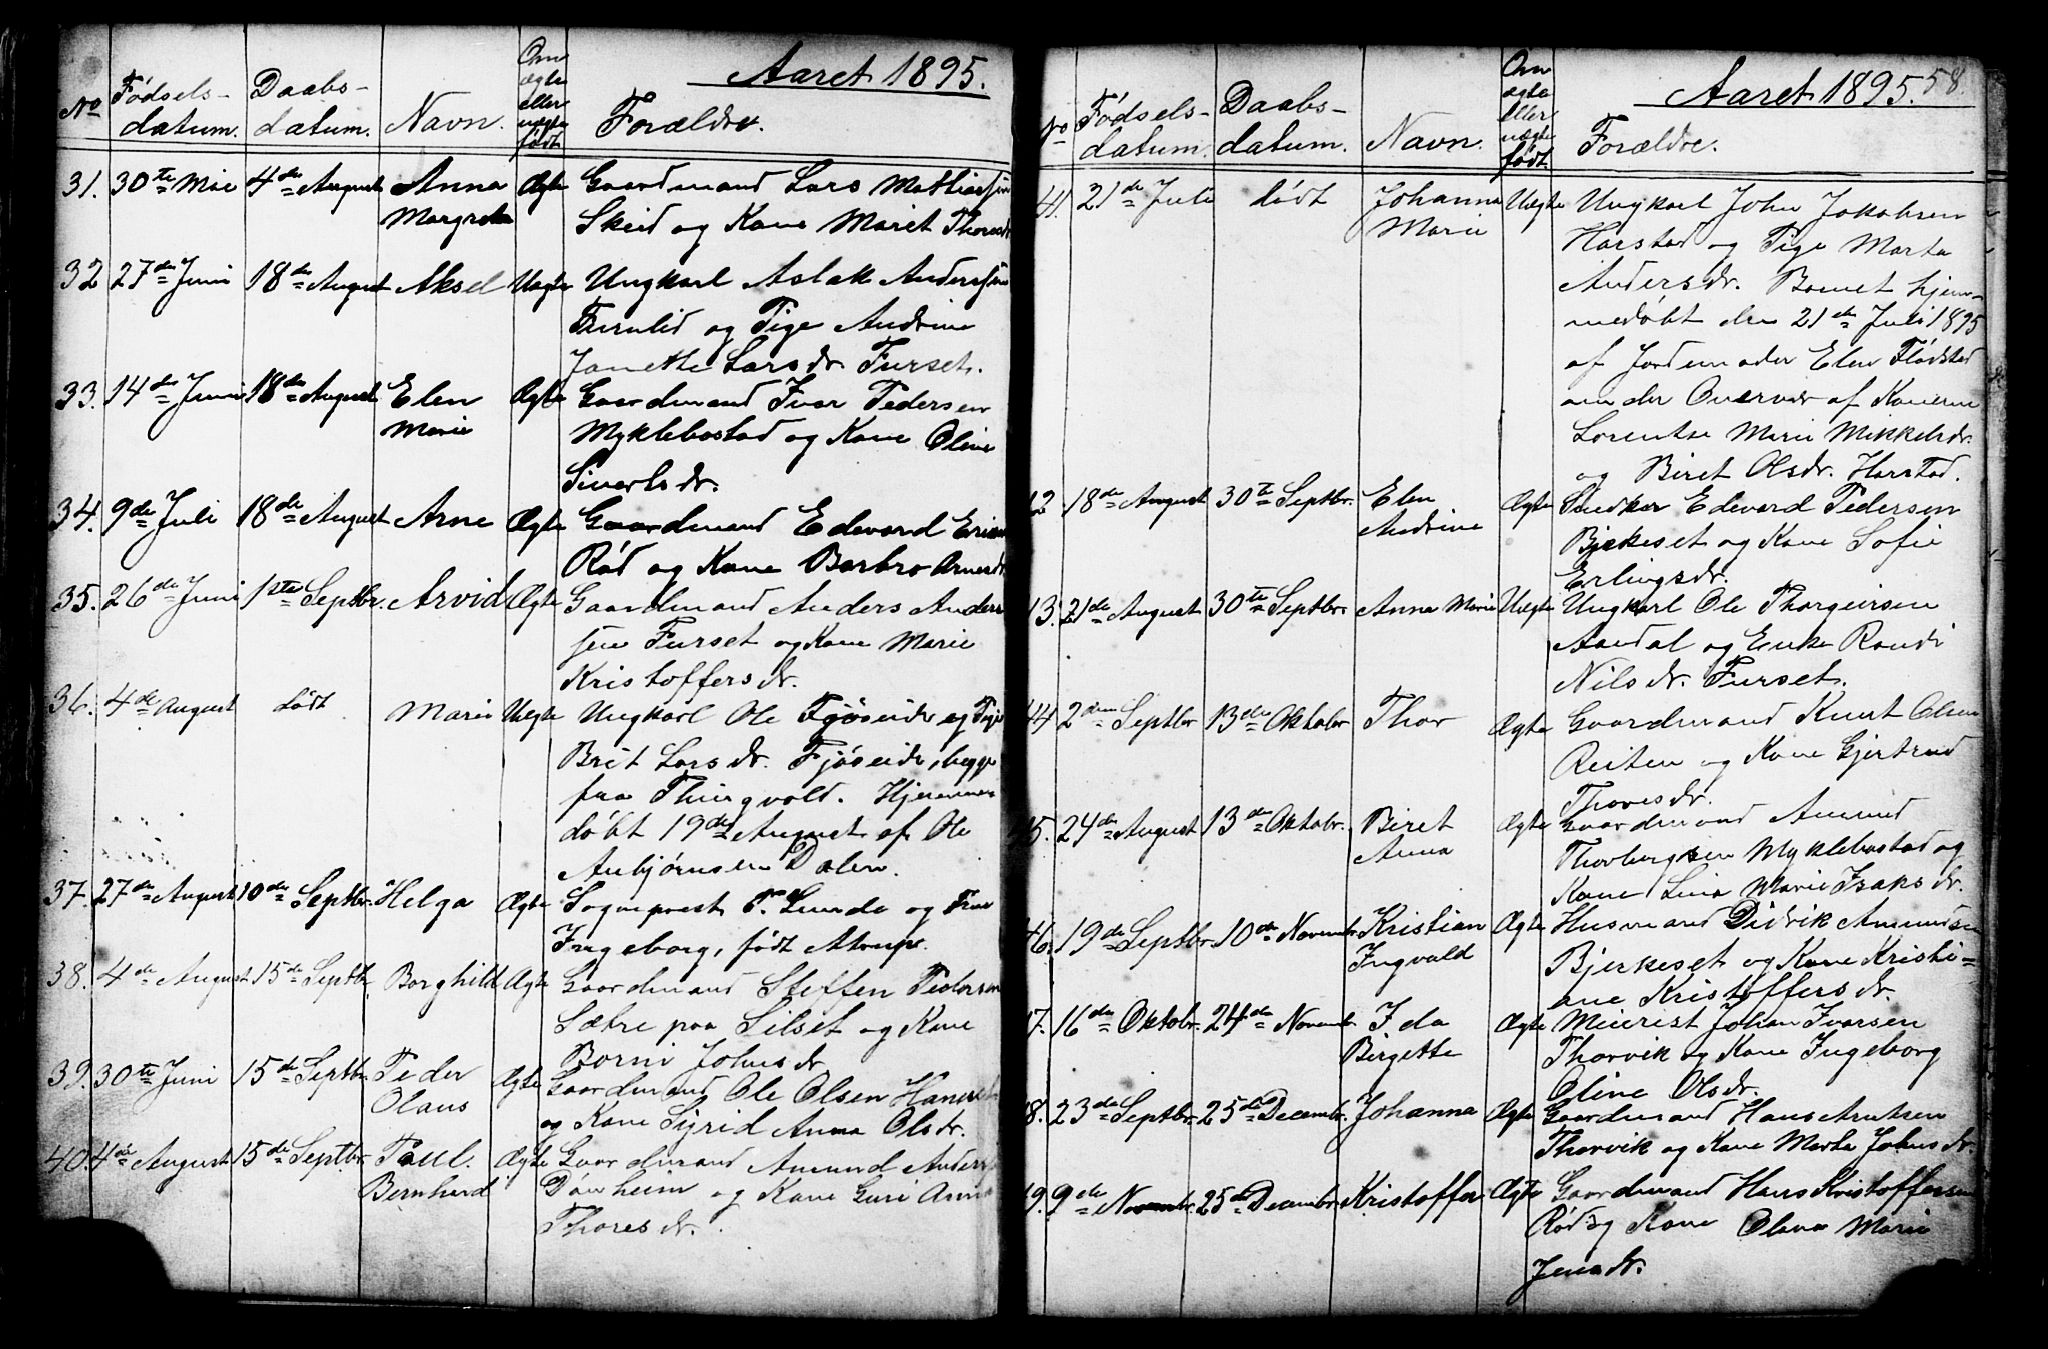 Aaret 1895.
No Fødsels-datum. Daabs-datum. Navn. Om ægte eller uægte født Forældre.
31. 30te Mai 4de August Anna Ægte Gaardmand Lars Mathiassen
Margreta Skeid og Kone Marit Thoresdr
32 27de Juni 18de August Aksel Uægte Ungkarl Aslak Anderssen
Furulid og Pige Andrine
Janette Larsdr. Furset.
33. 14de Juni 18de August Elen Ægte Gaardmand Ivar Pedersen
Marie Myklebostad og Kone Oline
Sivertsdr.
34. 9de Juli 18de August Arne Ægte Gaardmand Edevard
Rød og Kone Barbro Arnesdr
35. 26de Juni 1ste Septbr. Arvid Ægte Gaardmand Anders Anders
sen Furset og Kone Marie
Kristoffersdr.
36. 4de August død Marie Uægte Ungkarl Ole Fjøseide og Pige
Brit Larsdr. Fjøseide, begge
fra Thingvold. Hjemme
døbt 19de August af Ole
Anbjørnsen Dalen.
37. 27de August 10de Septbr. Helga Ægte Sogneprest P. Lunde og Frue
Ingeborg, født Atrup.
38. 4de August 15de Septbr Borghild Ægte Gaardmand Steffen Pedersen
Sætre paa Silset og Kone
Borni Johnsdr
39. 30te Juni 15de Septbr. Peder Ægte Gaardmand Ole Olsen
Olaus og Kone Sigrid Anna Olsdr.
40. 4de August 15de Septbr. Paul Ægte Gaardmand Amund
Bernhard og Kone Guri Anna
Thoresdr.
Aaret 1895. 58.
No Fødsels-datum. Daabs-datum. Navn. Om ægte eller uægte født Forældre.
41. 21de Juli død Johanna Uægte Ungkarl John Jakobsen
Marie Harstad og Pige Marta
Andersdr. Barnet hjem-
medøbt den 21de Juli 1895
af Jordemoder Elen Flødstad
under Overvær af Konerne
Lorentse Marie Mikkelsdr.
og Biret Olsdr. Harstad.
42 18de August 30te Septbr. Elen Ægte Edevard Pedersen
Andrine Bjerkeset og Kone Sofie
Erlingsdr.
43. 21de August 30te Septbr. Anna Marie Uægte Ungkarl Ole Thorgeirsen
Aandal og Enke Randi
Nilsdr. Furset.
44 2den Septbr 13de Oktobr Thor Ægte Gaardmand Knut Olsen
Reiten og Kone Gjertrud
Thoresdr.
45. 24de August 13de Oktobr. Biret Ægte Gaardmand Amund
Anna Thorbergsen Myklebostad og
Kone Lina Marie Isaksdr.
46. 19de Septbr. 10de Novembr. Kristian Ægte Husmand Didrik Amundsen
Ingvald Bjerkeset og Kone Kristi-
ane Kristoffersdr.
47. 16de Oktobr. 24de Novembr. Ida Ægte Meierist Johan Ivarsen
Birgette Thorvik og Kone Ingeborg
Oline Olsdr.
48. 23de Septbr. 25de Decembr. Johanna Ægte Gaardmand Hans Arntsen
Thorvik og Kone Marta Johnsdr.
49. 9de Novembr. 25de Decembr. Kristoffer Ægte Gaardmand Hans Kristoffersen
Rød og Kone Olava Marie
Jensdr.